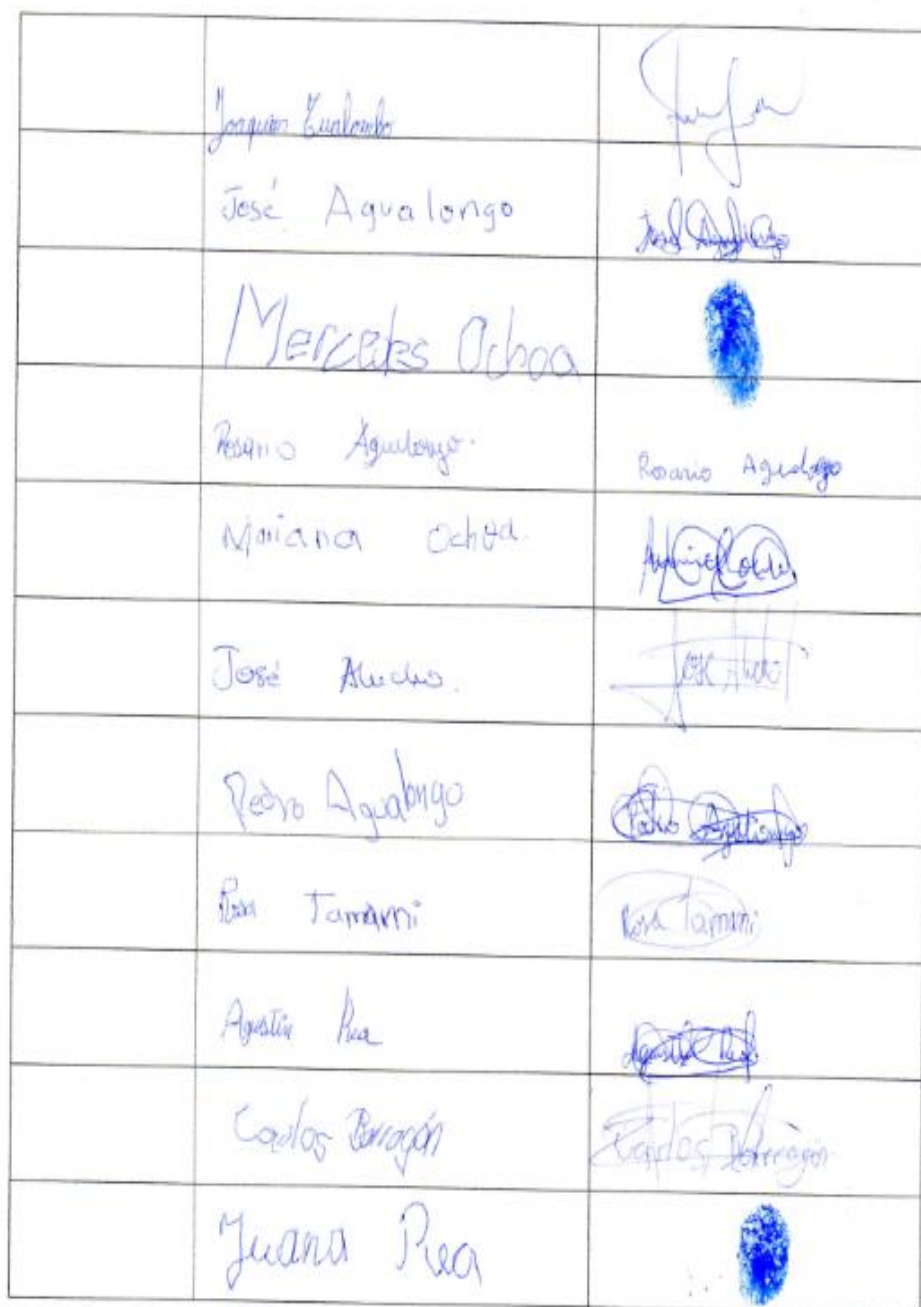 Joaquin
José Agualongo
José Agualongo
Mercedes Ochoa
Rosario Agualongo.
Rosario Agualongo
Mariana Ochoa
José Alucho.
José Alucho
Pedro Agualongo
Pedro Agualongo
Rosa Tamami
Rosa Tamami
Agustín Rea
Agustín Rea
Carlos Barragán
Carlos Barragán
Juana Rea